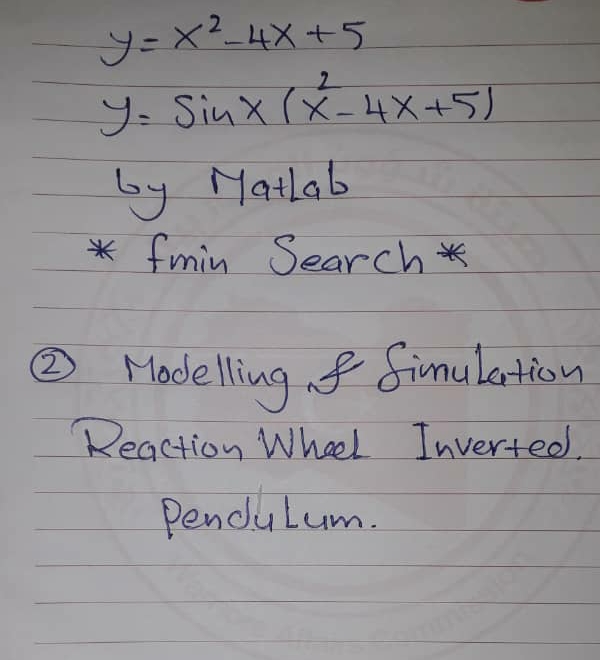 y = x² - 4x + 5
y = Sinx (x² - 4x + 5)
by Matlab
* fmin Search *
② Modelling & Simulation
Reaction Wheel Inverted.
Pendulum.